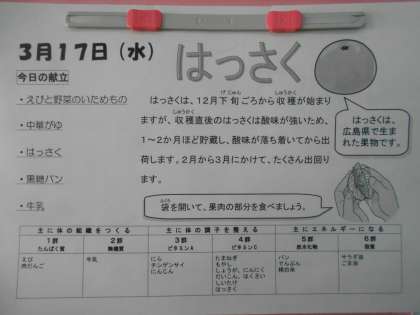 3月17日（水）
はっさく
今日の献立
・えびと野菜のいためもの
・中華がゆ
・はっさく
・黒糖パン
・牛乳
はっさくは、12月下旬ごろから収穫が始まり
げじゅん
しゅうかく
ますが、収穫直後のはっさくは酸味が強いため、
しゅうかく
1～2か月ほど貯蔵し、酸味が落ち着いてから出
荷します。2月から3月にかけて、たくさん出回り
ます。
はっさくは、
広島県で生ま
れた果物です。
ふくろ
袋を開いて、果肉の部分を食べましょう。
主に体の組織をつくる
主に体の調子を整える
主にエネルギーになる
1群 2群 3群 4群 5群 6群
たんぱく質 無機質 ビタミンA ビタミンC 炭水化物 脂質
えび
肉だんご
牛乳
にら
チンゲンサイ
にんじん
たまねぎ
もやし
しょうが、にんにく
だいこん、はくさい
しいたけ
はっさく
パン
でんぷん
サラダ油
ごま油